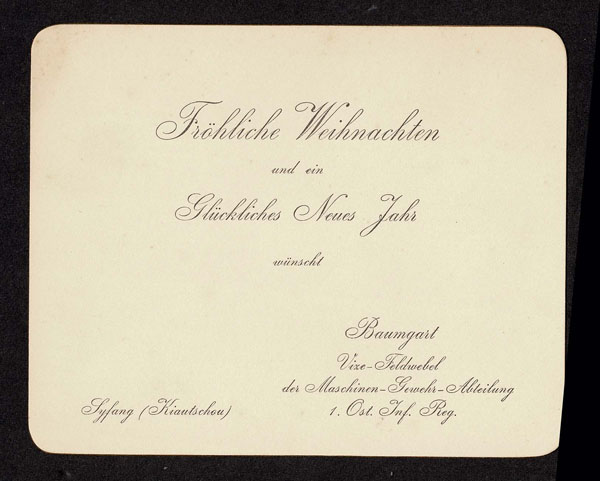 Fröhliche Weihnachten
und ein
Glückliches Neues Jahr
wünscht
Baumgart
Vize-Feldwebel
der Maschinen-Gewehr-Abteilung
Syfang (Kiautschou)
1. Ost. Inf. Reg.